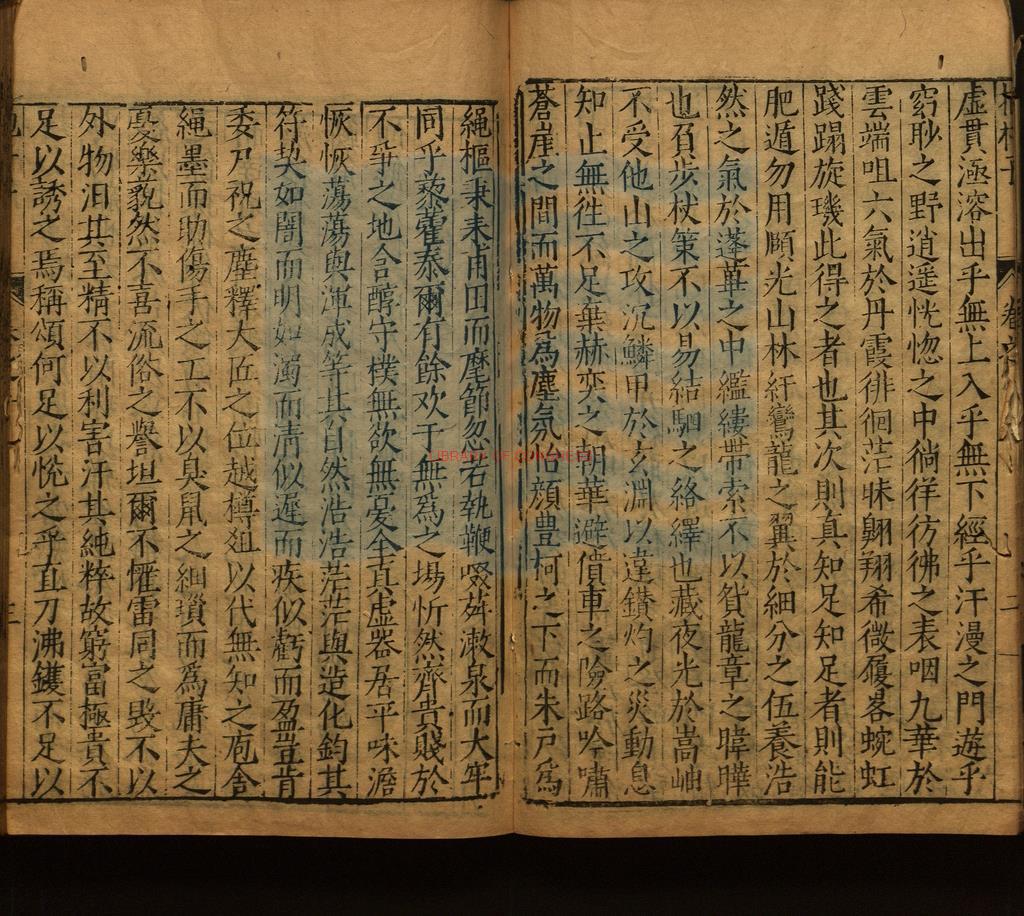 虛貫涵溶出乎無上入乎無下經乎汗漫之門遊乎
窈眇之野逍遥恍惚之中徜徉彷彿之表咽九華於
雲端咀六氣於丹霞徘徊茫昧翺翔希微履畧蜿虹
踐躡旋璣此得之者也其次則真知足知足者則能
肥遁勿用頥光山林紆鸞龍之翼於細分之伍養浩
然之氣於蓬蓽之中繿縷帶索不以貿龍章之暐曄
也負步杖策不以易結駟之絡繹也藏夜光於嵩岫
不受他山之攻沉鱗甲於玄淵以違鑚灼之災動息
知止無徃不足棄赫奕之朝華避僨車之險路吟嘯
蒼崖之間而萬物爲塵氛怡顔豊柯之下而朱戸爲
繩樞秉耒甫田而麾節忽若執鞭啜荈漱泉而大牢
同乎藜藿泰爾有餘欢于無爲之場忻然齊貴賤於
不爭之地含醇守樸無欲無憂全真虛器居平味澹
恢恢蕩蕩與渾成等其自然浩浩茫茫與造化鈞其
符契如闇而明如濁而清似遲而疾似虧而盈豈肯
委尸祝之塵釋大匠之位越樽俎以代無知之庖舍
繩墨而助傷手之工不以臭鼠之細瑣而爲庸夫之
憂樂藐然不喜流俗之譽坦爾不懼雷同之毀不以
外物汨其至精不以利害汙其純粹故窮富極貴不
足以誘之焉稱頌何足以悅之乎直刀沸鑊不足以
LIBRARY OF CONGRESS